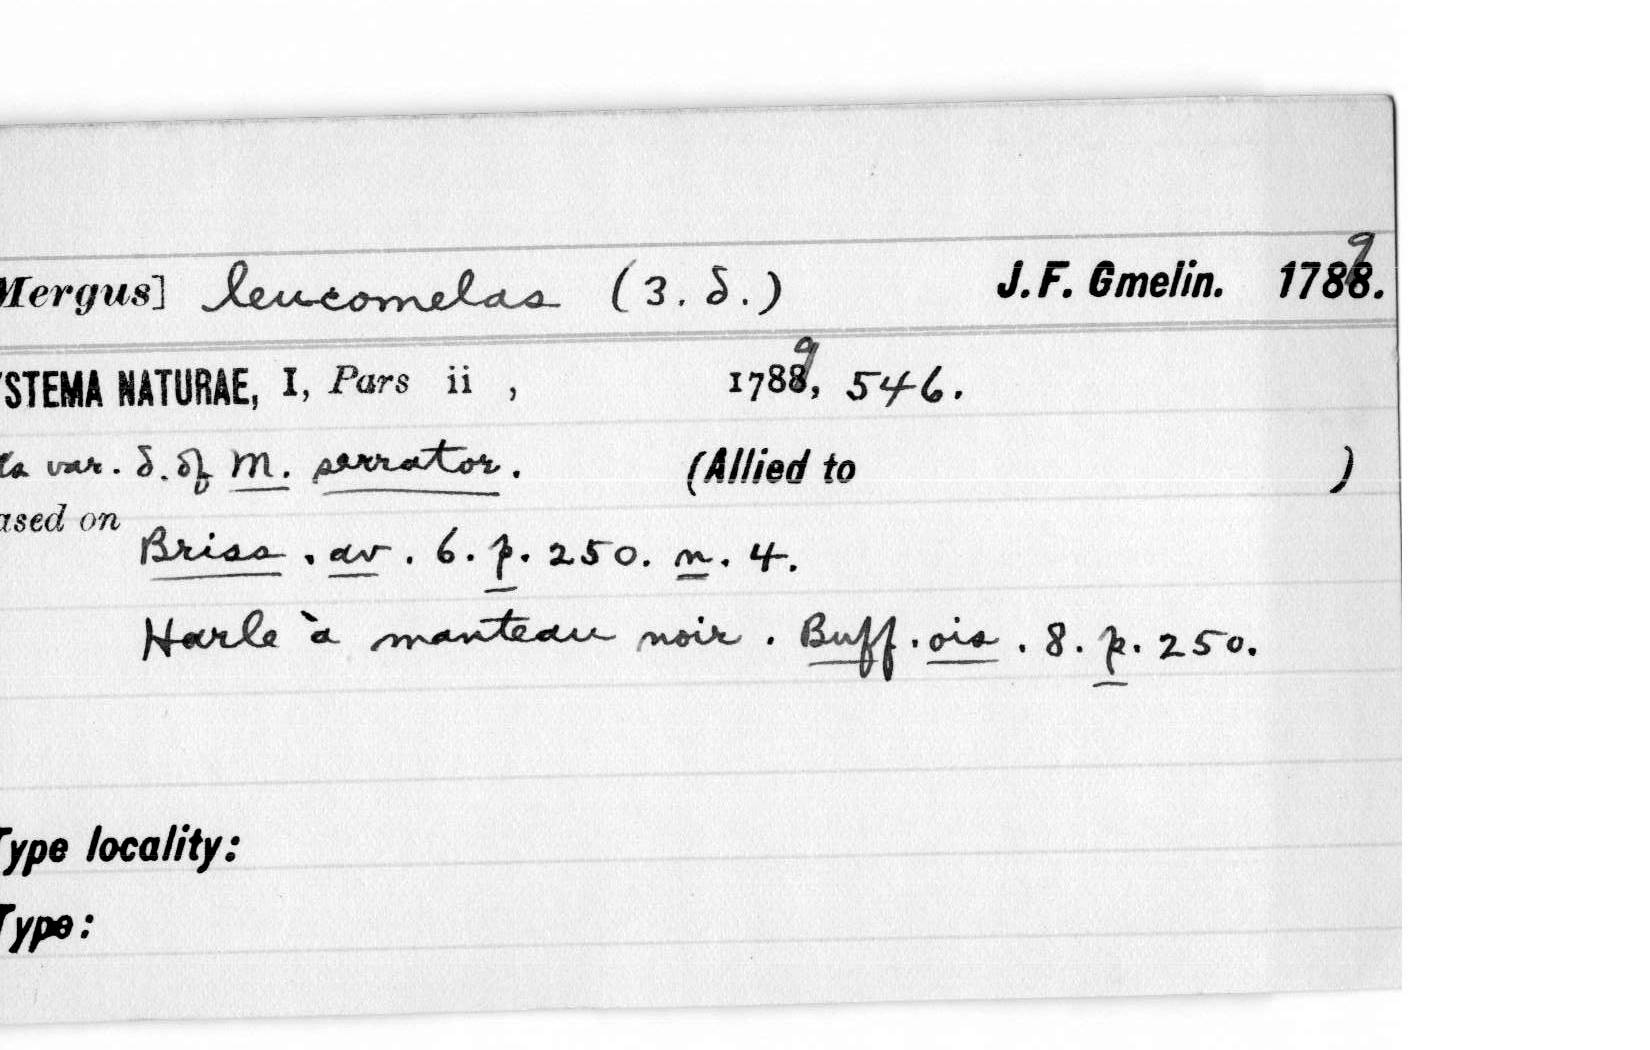 Mergus] leucomelas (3. δ.) J. F. Gmelin. 1789.
YSTEMA NATURAE, I, Pars ii , 1789, 546.
As var. δ. of M. serrator. (Allied to )
ased on
Briss. av. 6. p. 250. n. 4.
Harle à manteau noir. Buff. ois. 8. p. 250.
Type locality:
Type: